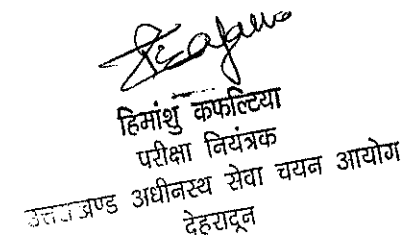 हिमांशु कफल्टिया
परीक्षा नियंत्रक
उत्तराखण्ड अधीनस्थ सेवा चयन आयोग
देहरादून